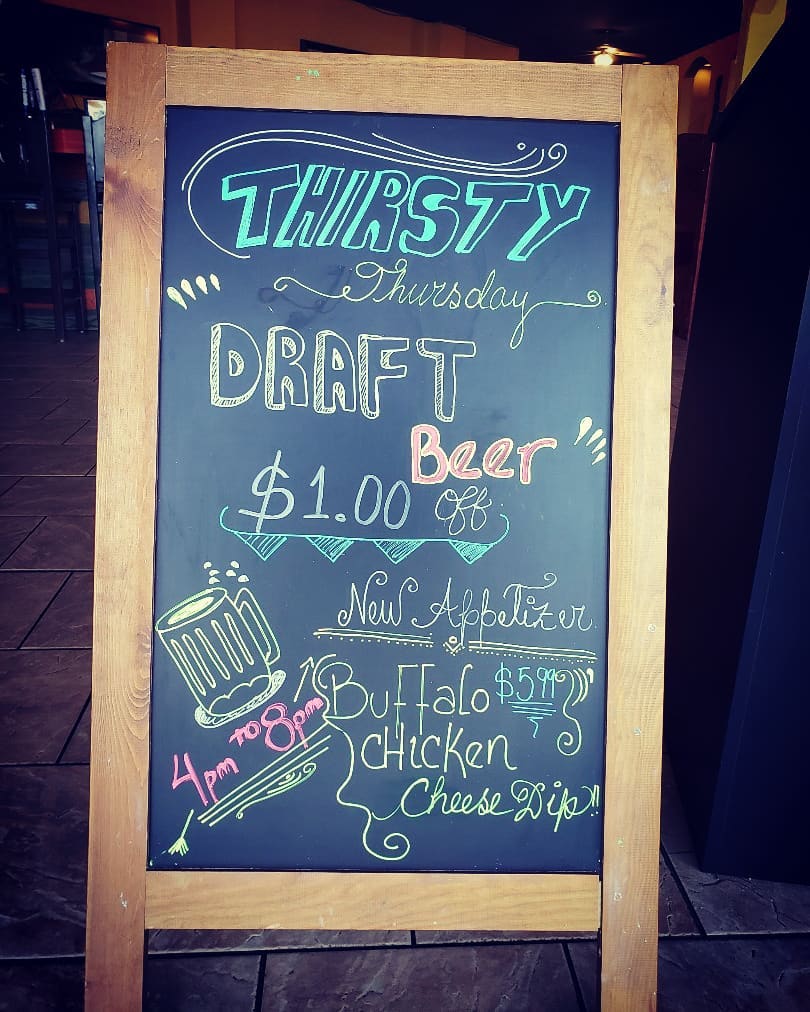 THIRSTY
Thursday
DRAFT
Beer
$1.00 off
New Appetizer
Buffalo $5.99
CHicken
Cheese Dip!!
4pm to 8pm